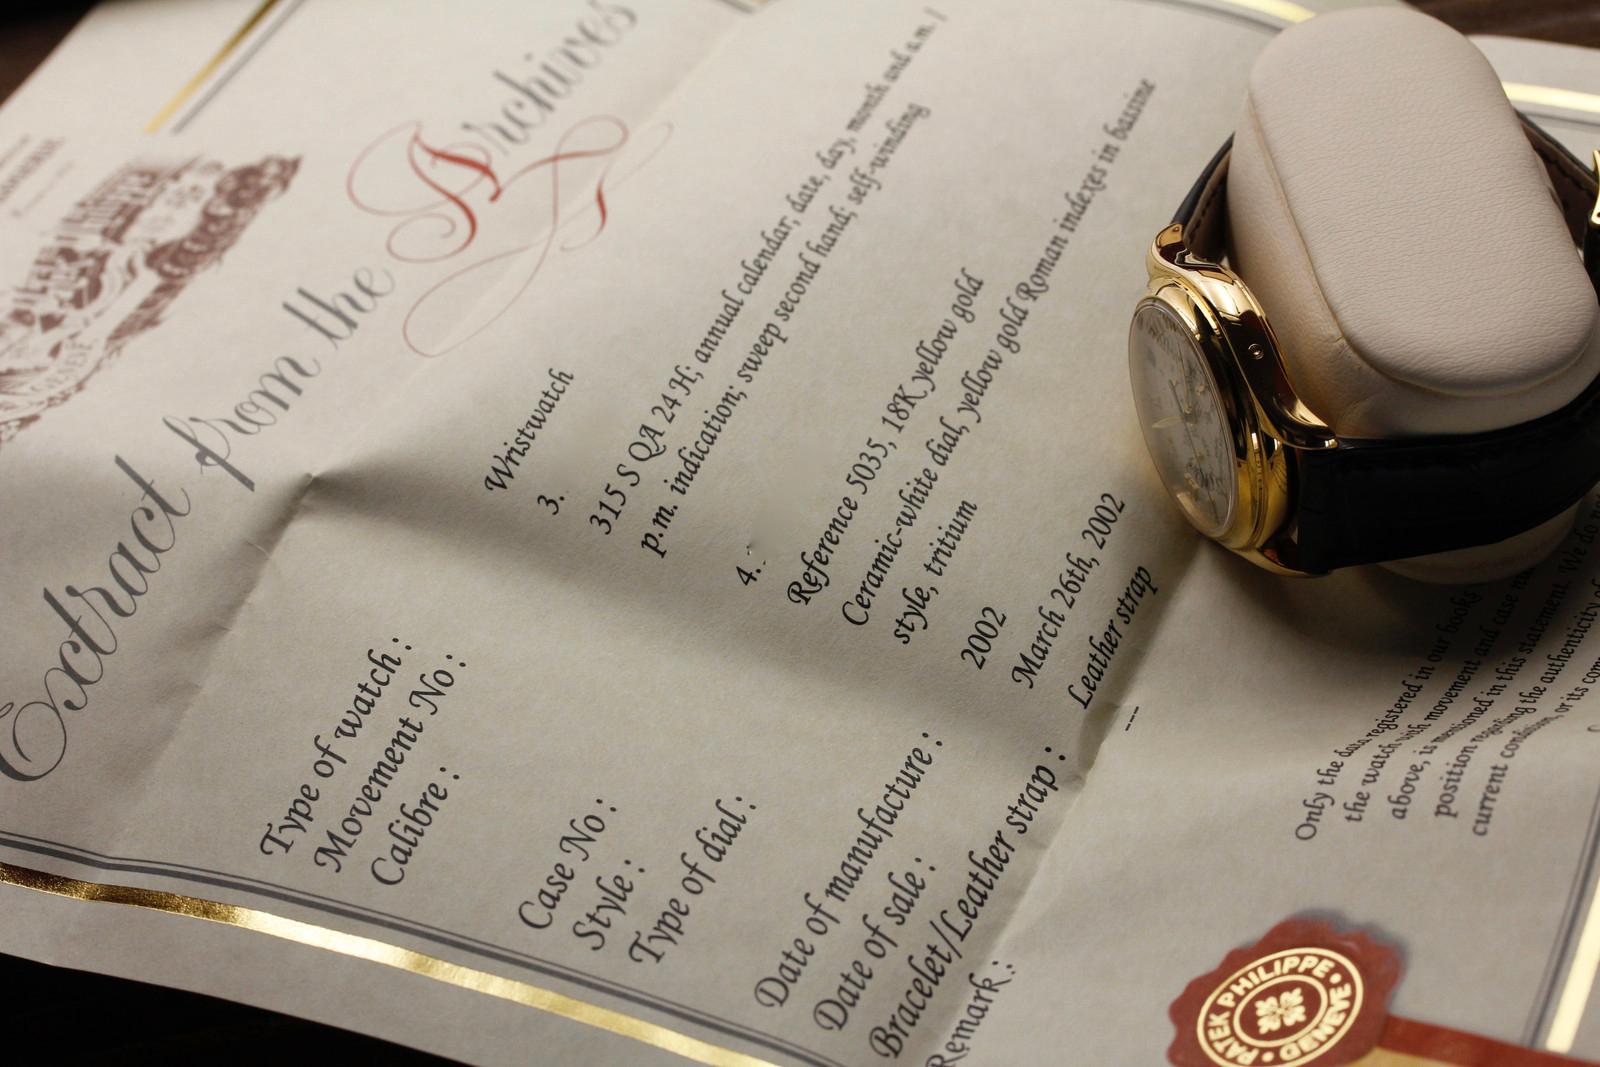 Extract from the Archives
Type of watch : Wristwatch
Movement No : 3.
Calibre : 315 S QA 24 H; annual calendar, date, day, month and a.m. /
p.m. indication; sweep second hand; self-winding
Case No : 4.
Style : Reference 5035, 18K yellow gold
Type of dial : Ceramic-white dial, yellow gold Roman indexes in bassine
style, tritium
Date of manufacture : 2002
Date of sale : March 26th, 2002
Bracelet/Leather strap : Leather strap
Remark : ---
Only the data registered in our books
the watch with movement and case
above, is mentioned in this statement. We do
position regarding the authenticity of
current condition, or its
PATEK PHILIPPE • GENEVE •